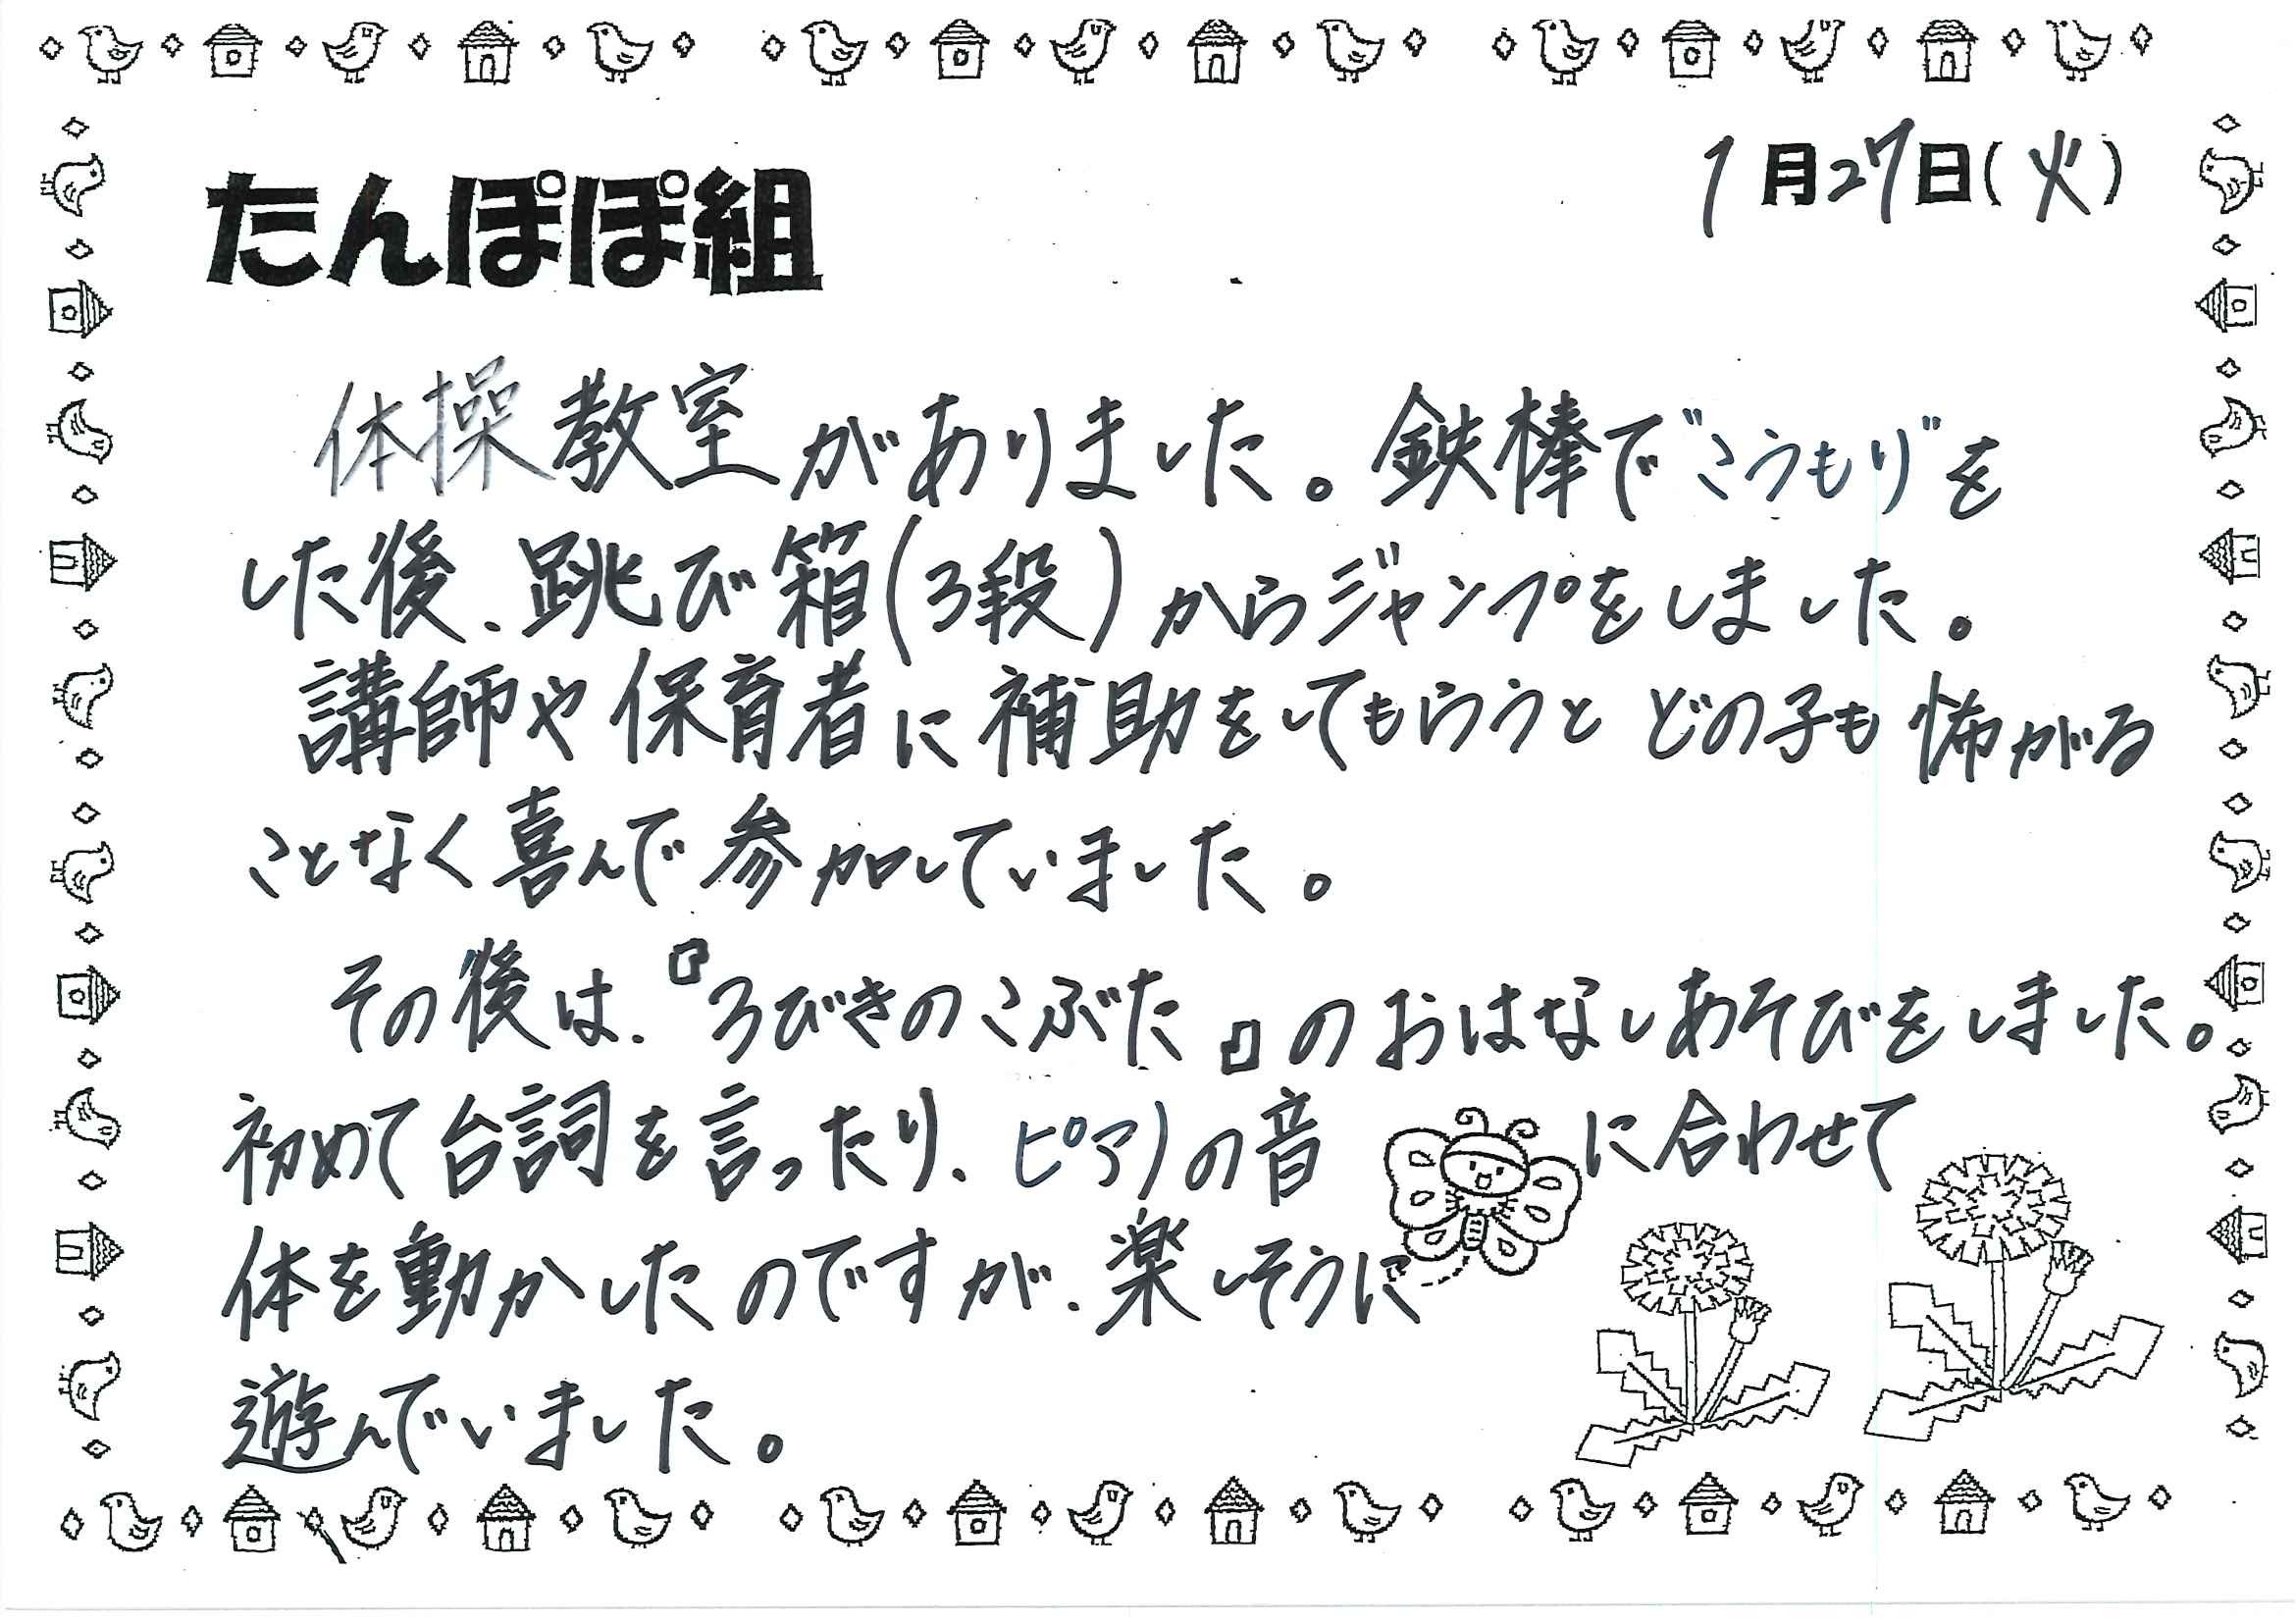 1月27日(火)
たんぽぽ組
体操教室がありました。鉄棒で"こうもり"を
した後、跳び箱(3段)からジャンプをしました。
講師や保育者に補助をしてもらうとどの子も怖がる
ことなく喜んで参加していました。
その後は、『3びきのこぶた』のおはなしあそびをしました。
初めて台詞を言ったり、ピアノの音に合わせて
体を動かしたのですが、楽しそうに
遊んでいました。